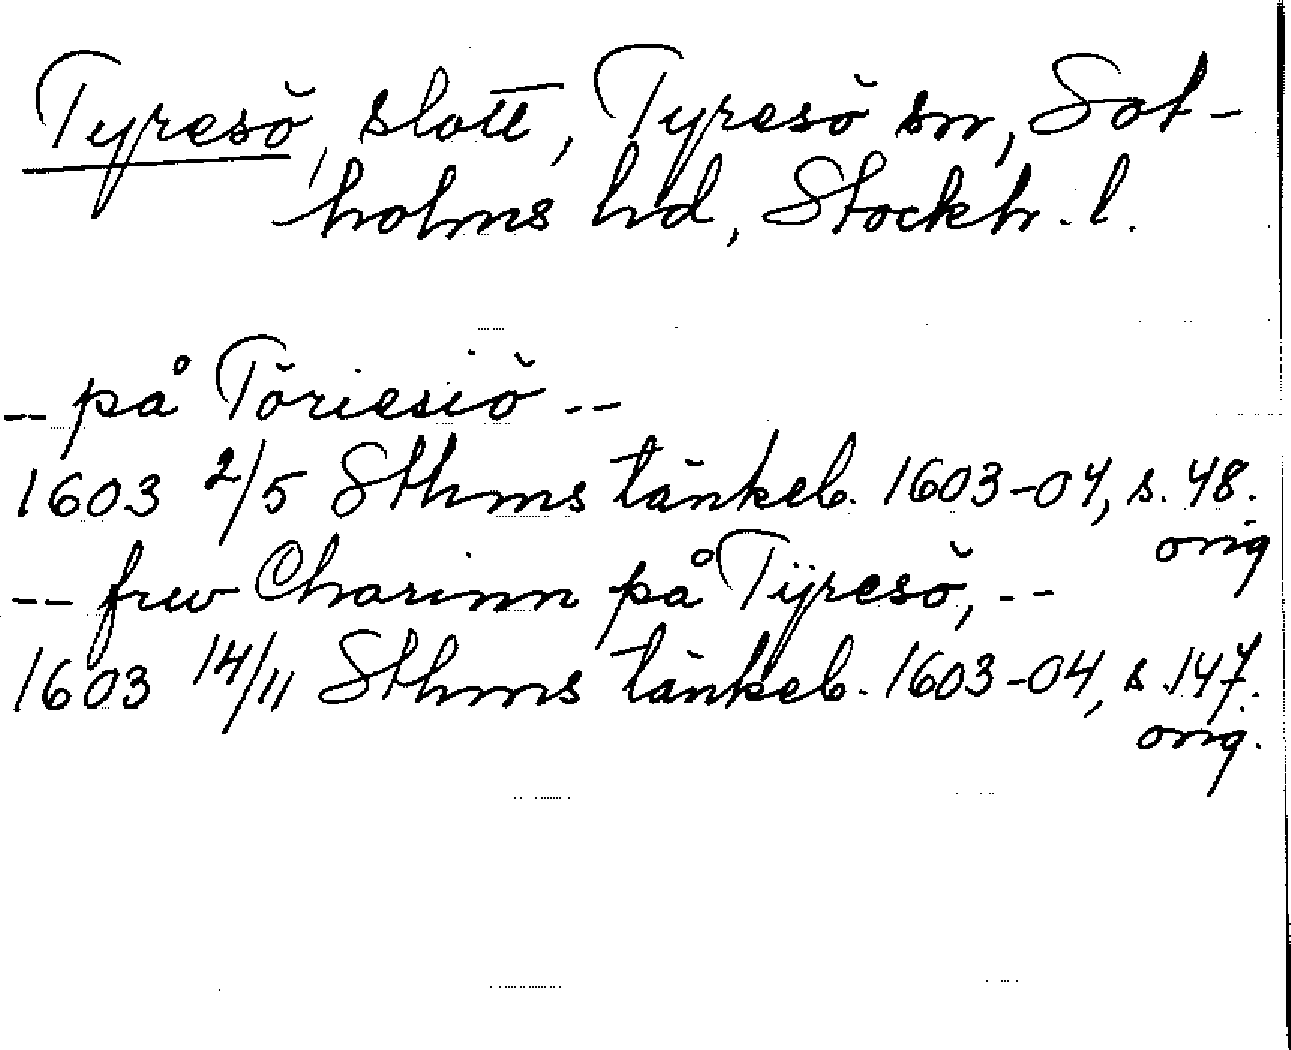 Tyresö, slott, Tyresö sn, Sot-
holms hd, Stockh. l.
-- på Töriesiö --
1603 2/5 Sthms tänkeb. 1603-04, s. 48.
orig
-- frw Charinn på Tÿresö, --
1603 14/11 Sthms tänkeb. 1603-04, s. 147.
orig.